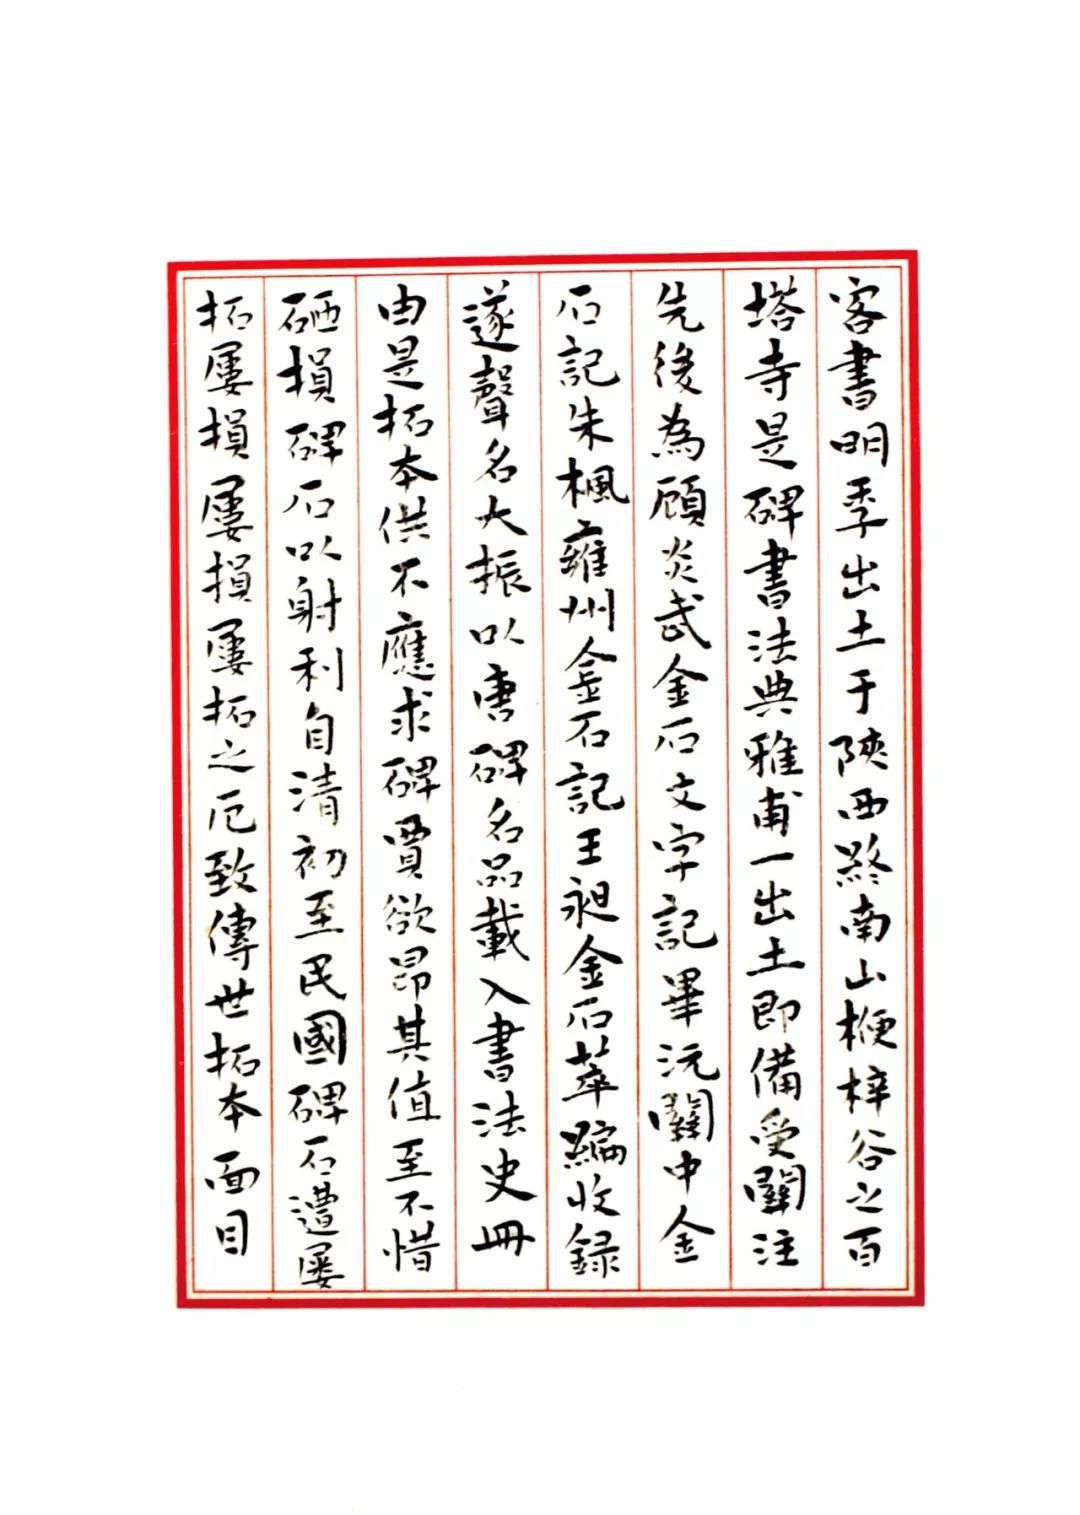 客書明季出土于陝西終南山楩梓谷之百
塔寺是碑書法典雅甫一出土即備受關注
先後為顧炎武金石文字記畢沅關中金
石記朱楓雍州金石記王昶金石萃編收録
遂聲名大振以唐碑名品載入書法史冊
由是拓本供不應求碑賈欲昂其值至不惜
砸損碑石以射利自清初至民國碑石遭屢
拓屢損屢損屢拓之厄致傳世拓本面目